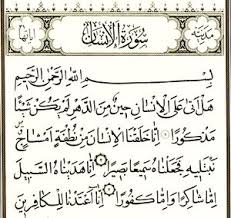 مدنيته سورة الإنسان آياتها
بِسْمِ اللهِ الرَّحْمٰنِ الرَّحِيمِ
هَلْ أَتَى عَلَى الْإِنْسَانِ حِينٌ مِنَ الدَّهْرِ لَمْ يَكُنْ شَيْئًا
مَذْكُورًا ۝ إِنَّا خَلَقْنَا الْإِنْسَانَ مِنْ نُطْفَةٍ أَمْشَاجٍ
نَبْتَلِيهِ فَجَعَلْنَاهُ سَمِيعًا بَصِيرًا ۝ إِنَّا هَدَيْنَاهُ السَّبِيلَ
إِمَّا شَاكِرًا وَإِمَّا كَفُورًا ۝ إِنَّا أَعْتَدْنَا لِلْكَافِرِينَ